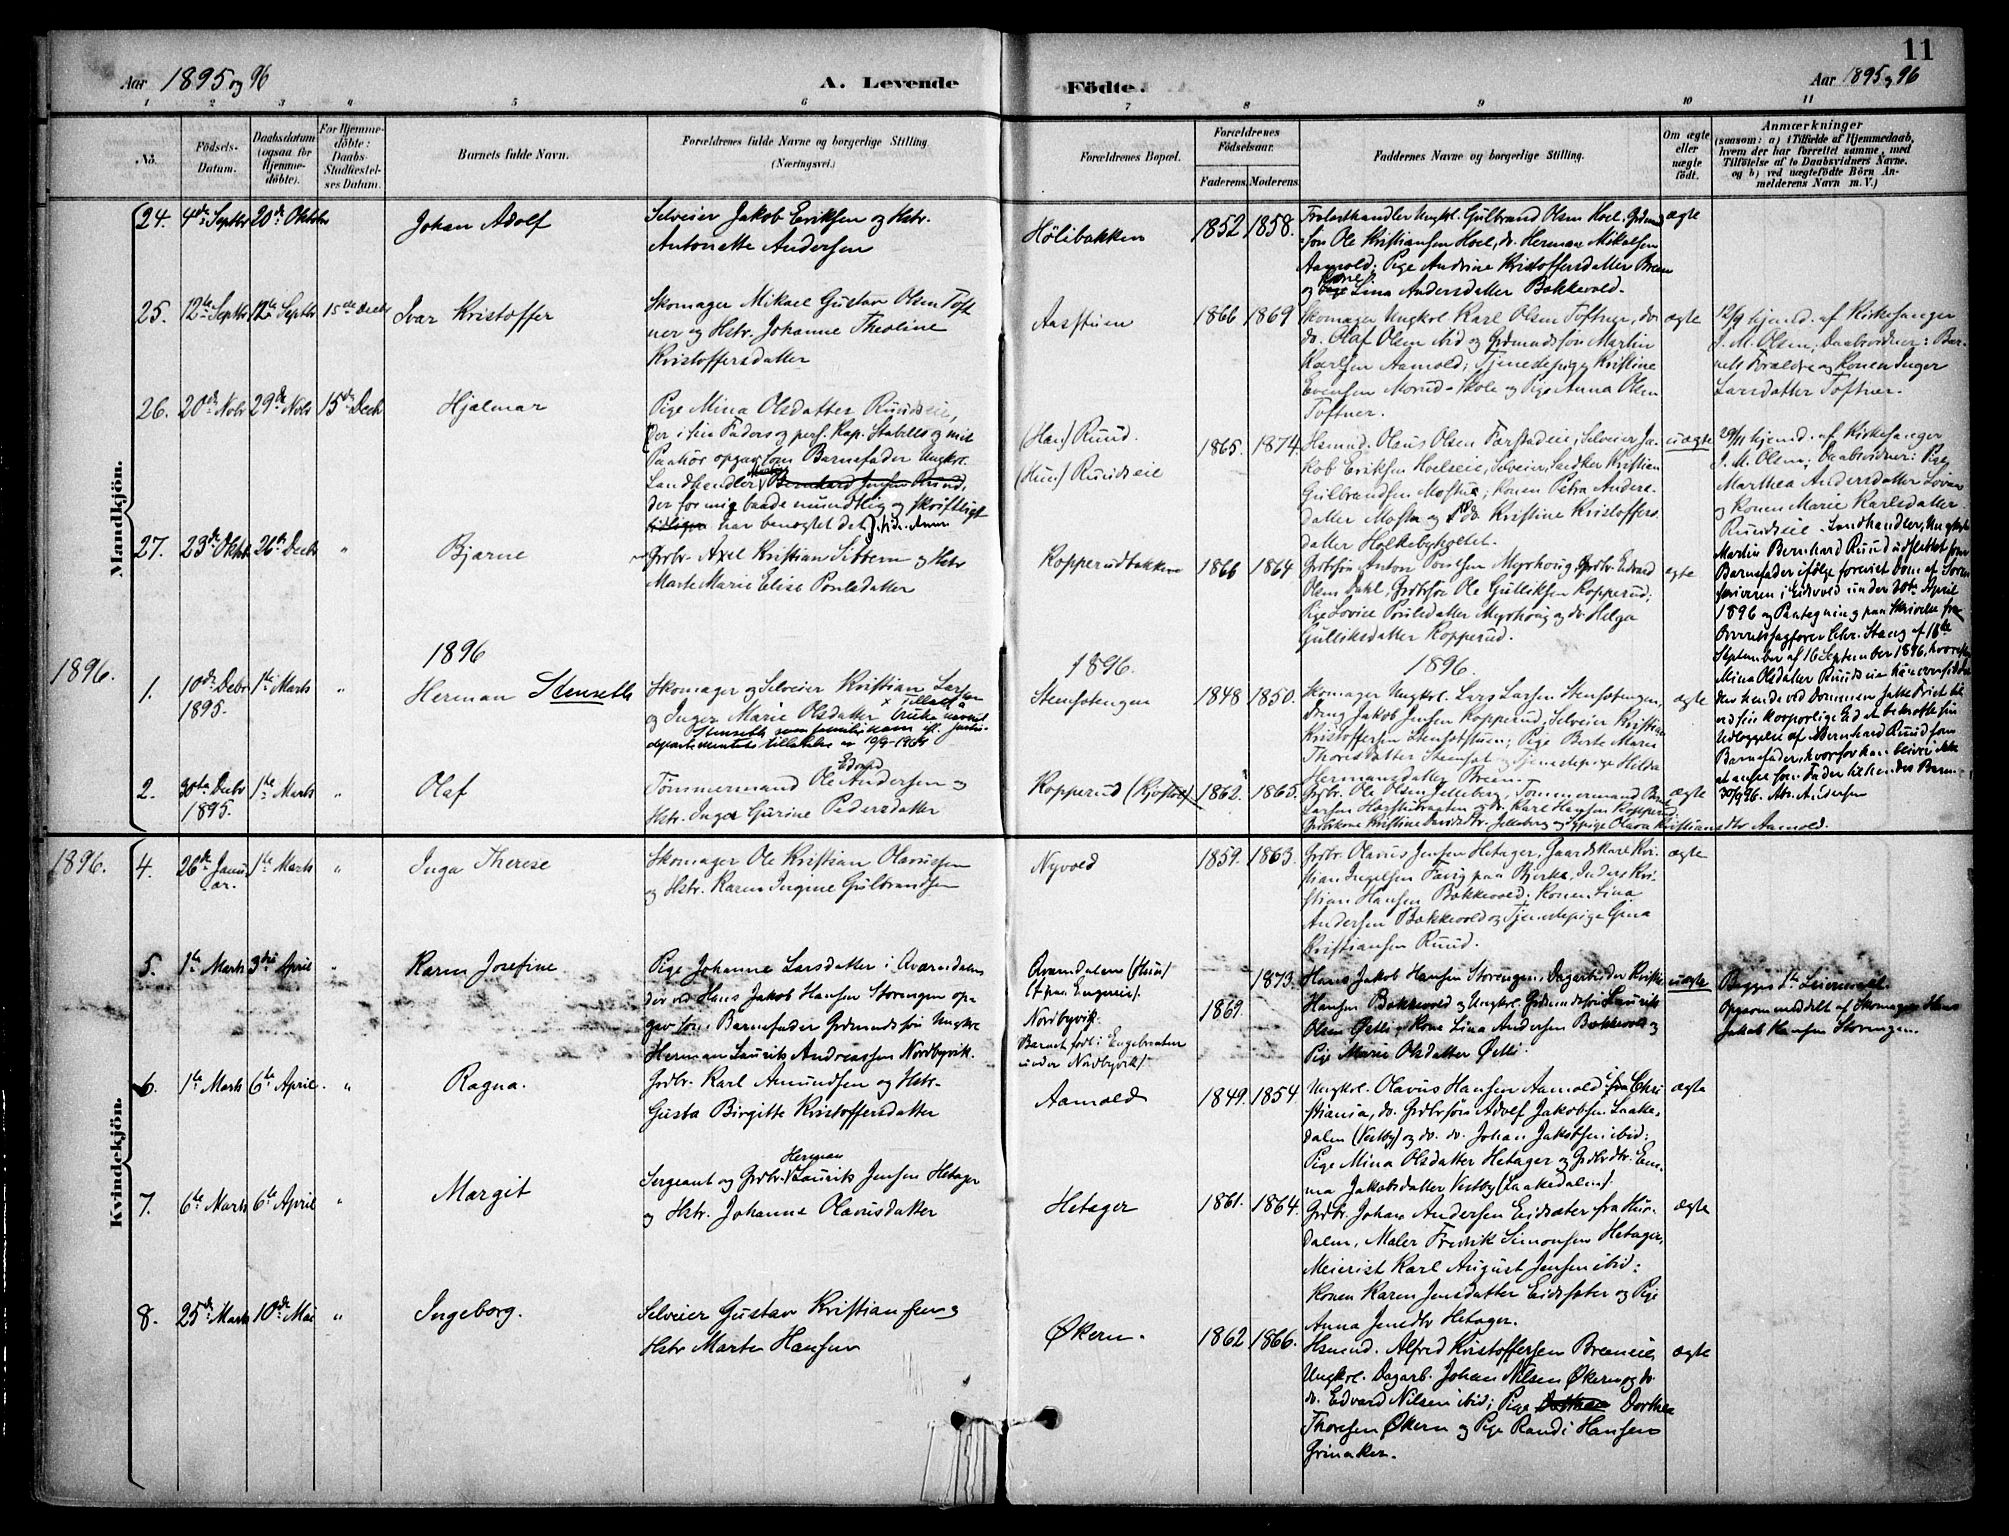 11
Aar 1895 og 96
A. Levende
Födte.
Aar 1895 og 96
1 2 3 4 5 6 7 8 9 10 11
No.
Födsels-Datum.
Daabsdatum (ogsaa for Hjemmedöbte).
For Hjemmedöbte: Daabs-Stadfæstelses Datum.
Barnets fulde Navn.
Forældrenes fulde Navne og borgerlige Stilling.
(Næringsvei.)
Forældrenes Bopæl.
Forældrenes Födselsaar.
Faderens. Moderens.
Faddernes Navne og borgerlige Stilling.
Om ægte eller uægte födt.
Anmærkninger
(saasom: a) i Tilfælde af Hjemmedaab, hvem der har forrettet samme, med Tilföielse af to Daabsvidners Navne. og b) ved uægtefödte Börn Anmelderens Navn m. V.)
Mandkjön.
24. 4de Septbr 20de Oktober
Johan Adolf
Selveier Jakob Eriksen og Hstr.
Antonette Andersen
Hölibakken
1852 1858.
Trælasthandler Ungkrl. Gulbrand Olsen Hoel, Grdmand
søn Ole Kristiansen Hoel, do. Herman Mikalsen
Aamold; Pige Andrine Kristoffersdatter Breen
og Kone Lina Andersdatter Bakkevold.
ægte
25. 12te Septbr 12te Septbr 15de Decbr
Ivar Kristoffer
Skomager Mikael Gustav Olsen Toft
ner og Hstr. Johanne Theoline
Kristoffersdatter
Aasstuen
1866 1869
Skomager Ungkrl. Karl Olsen Toftner, do.
do. Olaf Olsen ibid og Grdmandssøn Martin
Karlsen Aamold; Tjenedepige Kristine
Evensen Morud-Skole og Pige Anna Olsen
Toftner.
ægte
12/9 hjemd. af Kirkesanger
J. M. Olsen; Daabsvidner: Bar-
nets Forældre og Konen Inger
Larsdatter Toftner.
26. 20de Nobr 29de Nobr 15de Decbr
Hjalmar
Pige Mina Olsdatter Ruudseie,
der i sin Faders og pers. Kap. Stabells og mit
Paahør opgav som Barnefader Ungkrl.
Landhandler Martin Bernhard Jensen Ruud,
der for mig baade mundtlig og skriftligt
har benegtet det.
(Han) Ruud.
(Hun) Ruudseie
1865. 1874.
Hsmnd. Olaus Olsen Færstadeie, Selveier Ja-
kob Eriksen Hoelseie, Selveier, Snedker Kristian
Gulbrandsen Mostue; Konen Petra Anders-
datter Mostue og do. Kristine Kristoffers-
datter Holkebyholtet.
uægte
29/11 hjemd. af Kirkesanger
J. M. Olsen; Daabsvidner: Pige
Marthea Andersdatter Lovær
og Konen Marie Karlsdatter
Ruudseie. Landhandler, Ungkrl.
Martin Bernhard Ruud udslettet som
Barnefader ifølge foreviet Dom af Soren-
skriveren i Eidsvold under 20de April
1896 og Paategning paa Skrivelse fra
Overretssagfører Chr. Stang af 18de
September af 16 September 1896, hvorefter
Mina Olsdatter Ruudseie
den hende ved Dommen satte Frist til
ved sin korporlige Eid at bekræfte sin
Udlæggelse af Bernhard Ruud som
Barnefader, hvorfor han bliver ikke
at anse som Fader til hendes Barn.
30/9 96. Abr. Andersen
27. 23de Oktbr 26de Decbr "
Bjarne
Grdbr. Axel Kristian Sibbern og Hstr
Marte Marie Elise Poulsdatter
Kopperudbakken
1866 1864
Grdbrsøn Anton Poulsen Myrhoug, Grdbr. Edvard
Olsen Dahl, Grdbrsøn Ole Gulliksen Kopperud;
Pige Lovise Poulsdatter Myrhoug og do. Helga
Gulliksdatter Kopperud.
ægte
1896 1896. 1896.
1896.
1. 10de Debr 1895. 1ste Marts "
Herman Stenseth
Skomager og Selveier Kristian Larsen
og Inger Marie Olsdatter x Tillad. a bruke navnet
Stenseth som familienavn efter justis-
departementets tillatelse av 19/9-1964
Stensetengen
1848 1850.
Skomager Ungkrl. Lars Larsen Stensetengen,
Dreng Jakob Jensen Kopperud, Selveier Kristian
Kristoffersen Stensetstuen; Pige Berte Marie
Thoresdatter Stenset og Tjenedepige Hilda
Hermansdatter Breen.
ægte
2. 30te Debr 1895. 1ste Marts "
Olaf
Tømmermand Ole Edvard Andersen og
Hstr. Inga Gurine Pedersdatter
Kopperud (Kjosttad)
1862. 1865.
Grdbr. Ole Olsen Jelleberg, Tømmermand
Larsen og do. Karl Hansen Kopperud;
Gårdkone Kristine Davidsdtr. Jelleberg og Sypige Olava Kristiansdtr Aamold.
ægte
Kvindekjön.
1896.
4. 26de Januar. 1ste Marts "
Inga Therese
Skomager Ole Kristian Olavessen
og Hstr. Karen Ingine Gulbrandsen
Nyvold
1859. 1863.
Grdbr. Olavus Jensen Hetager, Gaardskarl Kri-
stian Ingelsen Tærig paa Bjerke, Inderst Kri-
stian Hansen Bakkevold; Konen Lina
Andersen Bakkevold og Tjenedepige Gina
Kristiansen Ruud.
ægte
5. 1ste Marts 3die April "
Karen Josefine
Pige Johanne Larsdatter i Qværndalen
der ved Hans Jakob Hansen Storengen op-
gav som Barnefader Grdmandssøn Ungkrl
Herman Laurits Andreassen Nordbyvik.
Qværndalen (Hun)
(t. paa Engereie).
Nordbyvik.
Barnet født i Engebraaten
under Nordbyvik).
1873.
1869.
Hans Jakob Hansen Storengen, Dagarbeider Kristian
Hansen Bakkevold og Ungkrl. Grdmandssøn Laurits
Olsen Østli; Kone Lina Andersen Bakkevold og
Pige Marie Olsdatter Østli.
uægte
Begges 1ste Leiermaal.
Opgaven meddelt af Skomager Hans
Jakob Hansen Storengen.
6. 1ste Marts 6te April. "
Ragna.
Grdbr. Karl Amundsen og Hstr.
Gusta Birgitte Kristoffersdatter
Aamold
1849. 1854
Ungkrl. Olavus Hansen Aamold, fra Chri-
stiania, do. Grdbrsøn Adolf Jakobsen Laake-
dalen (Vestby) og do. do. Johan Jakobsen ibid:
Pige Mina Olsdatter Hetager og Grdbrdtr. Em-
ma Jakobsdatter Vestby (Laakedalen).
ægte
7. 6te Marts 6te April "
Margit
Sergeant og Grdbr. Herman Laurits Jensen Hetager
og Hstr. Johanne Olavusdatter
Hetager
1861. 1864.
Grdbr. Johan Andersen Eidsæter fra Hur-
dalen, Maler Fredrik Simonsen Hetager,
Meierist Karl August Jensen ibid:
Konen Karen Jensdatter Eidsæter og Pige
Anna Jensdtr Hetager.
ægte
8. 25de Marts 10de Mai "
Ingeborg.
Selveier Gustav Kristiansen og
Hstr Marte Hansen
Økern.
1862 1866.
Hsmnd. Alfred Kristoffersen Breeneie,
Ungkrl. Dagarb. Johan Nilsen Økern og do
do. Edvard Nilsen ibid; Pige Dorthea
Thoresen Økern og Pige Randi Hansen
Grinaker.
ægte